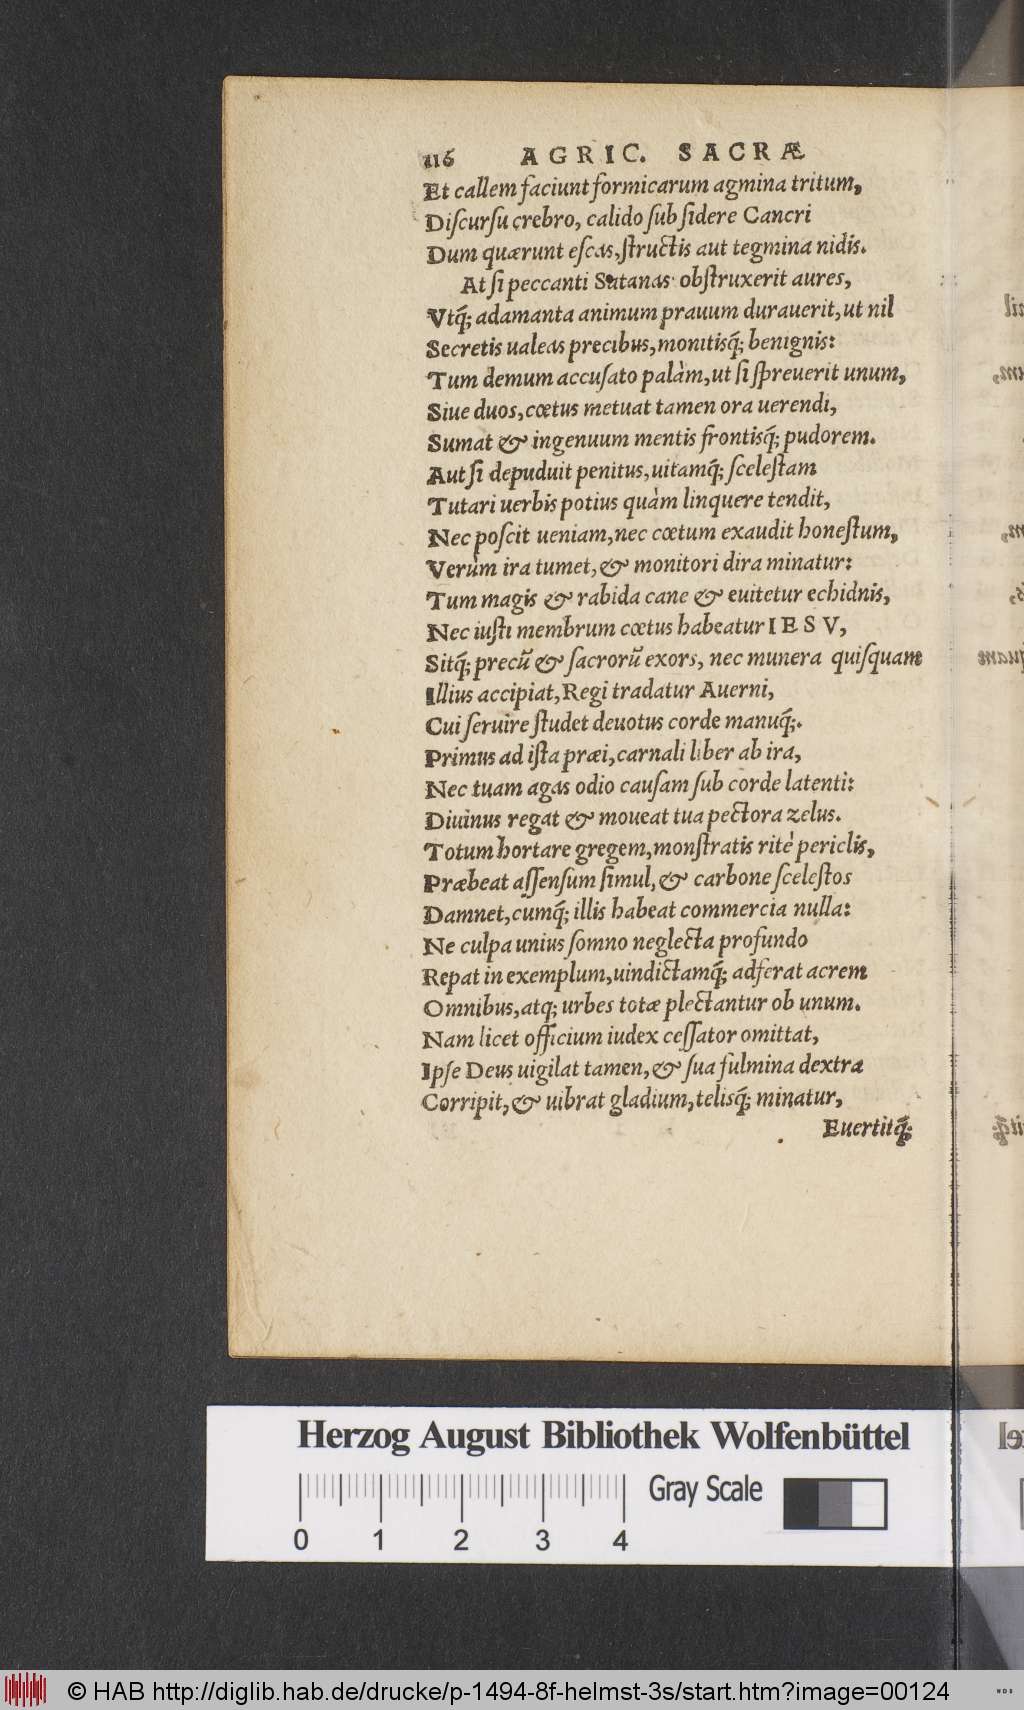 116 AGRIC. SACRÆ
Et callem faciunt formicarum agmina tritum,
Diſcurſu crebro, calido ſub ſidere Cancri
Dum quærunt eſcas, ſtructis aut tegmina nidis.
At ſi peccanti Satanas obſtruxerit aures,
Vtq́; adamanta animum prauum durauerit, ut nil
Secretis ualeas precibus, monitisq́; benignis:
Tum demum accuſato palàm, ut ſi ſpreuerit unum,
Siue duos, cœtus metuat tamen ora uerendi,
Sumat & ingenuum mentis frontisq́; pudorem.
Aut ſi depuduit penitus, uitamq́; ſceleſtam
Tutari uerbis potius quàm linquere tendit,
Nec poſcit ueniam, nec cœtum exaudit honeſtum,
Verùm ira tumet, & monitori dira minatur:
Tum magis & rabida cane & euitetur echidnis,
Nec iuſti membrum cœtus habeatur IESV,
Sitq́; precũ & ſacrorũ exors, nec munera quiſquam
Illius accipiat, Regi tradatur Auerni,
Cui ſeruire ſtudet deuotus corde manuq́;.
Primus ad iſta præi, carnali liber ab ira,
Nec tuam agas odio cauſam ſub corde latenti:
Diuinus regat & moueat tua pectora zelus.
Totum hortare gregem, monſtratis ritè periclis,
Præbeat aſſenſum ſimul, & carbone ſceleſtos
Damnet, cumq́; illis habeat commercia nulla:
Ne culpa unius ſomno neglecta profundo
Repat in exemplum, uindictamq́; adferat acrem
Omnibus, atq; urbes totæ plectantur ob unum.
Nam licet officium iudex ceſſator omittat,
Ipſe Deus uigilat tamen, & ſua fulmina dextra
Corripit, & uibrat gladium, telisq́; minatur,
Euertitq́;
Herzog August Bibliothek Wolfenbüttel
0 1 2 3 4 Gray Scale
© HAB http://diglib.hab.de/drucke/p-1494-8f-helmst-3s/start.htm?image=00124